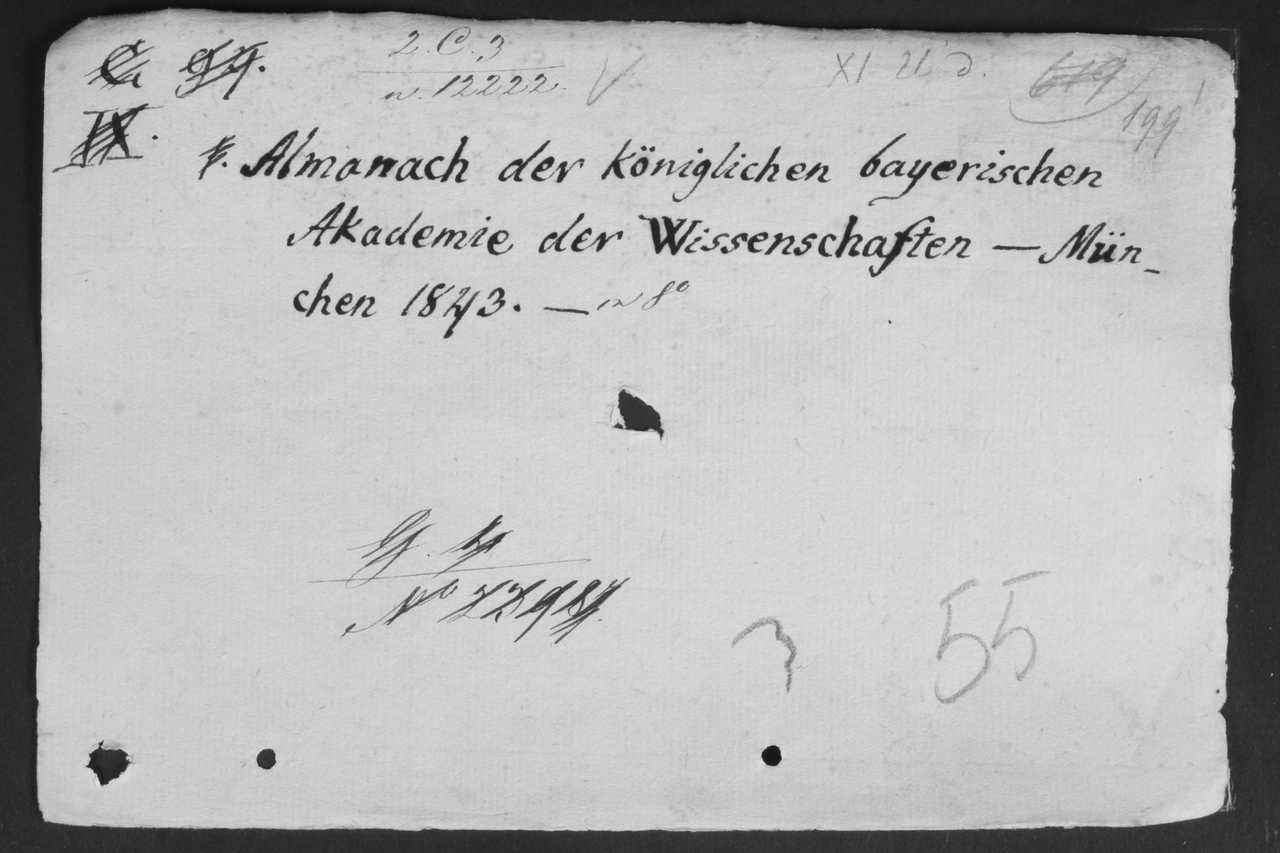 2. C. 3
n. 12222.
XI U d.
619
199
Almanach der königlichen bayerischen
Akademie der Wissenschaften — Mün-
chen 1843. — in 8º
Nº 22984.
3 55